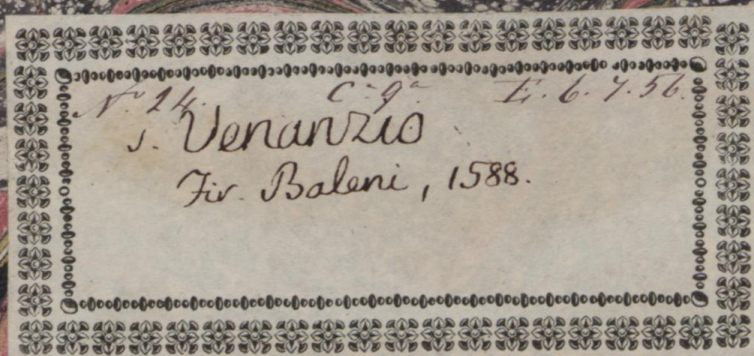 N. 24. C. 9a E. 6. 7. 56.
s. Venanzio
Fir. Baleni, 1588.